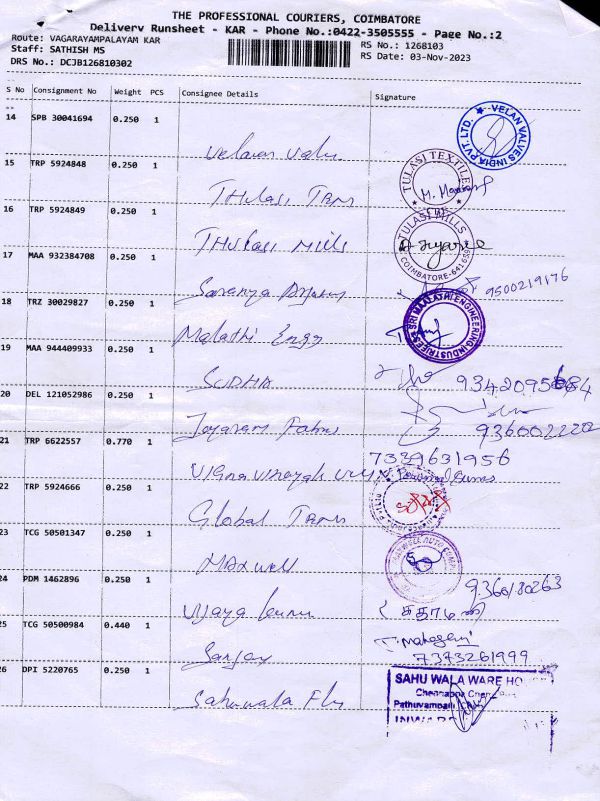 THE PROFESSIONAL COURIERS, COIMBATORE
Delivery Runsheet - KAR - Phone No.:0422-3505555 - Page No.:2
Route: VAGARAYAMPALAYAM KAR
RS No.: 1268103
Staff: SATHISH MS
RS Date: 03-Nov-2023
DRS No.: DCJB126810302
S No Consignment No Weight PCS Consignee Details Signature
14 SPB 30041694 0.250 1
VELAN VALVES INDIA PVT. LTD.
Velavan Valu
15 TRP 5924848 0.250 1
TULASI TEXTILE
THulasi TRM
16 TRP 5924849 0.250 1
TULASI MILLS
COIMBATORE-641659
THulasi Mills
17 MAA 932384708 0.250 1
Saranya
9500219176
18 TRZ 30029827 0.250 1
SRI MAALATHI ENGINEERING INDUSTRIES
Malathi Engg
19 MAA 944409933 0.250 1
SUDHA
20 DEL 121052986 0.250 1
Jayaram
9360022222
21 TRP 6622557 0.770 1
7339631956
22 TRP 5924666 0.250 1
Global TRM
23 TCG 50501347 0.250 1
Maxwell
24 PDM 1462896 0.250 1
Vijaya
25 TCG 50500984 0.440 1
Sanjay
7373261999
26 DPI 5220765 0.250 1
SAHU WALA WARE
Sahuwala
INWARD